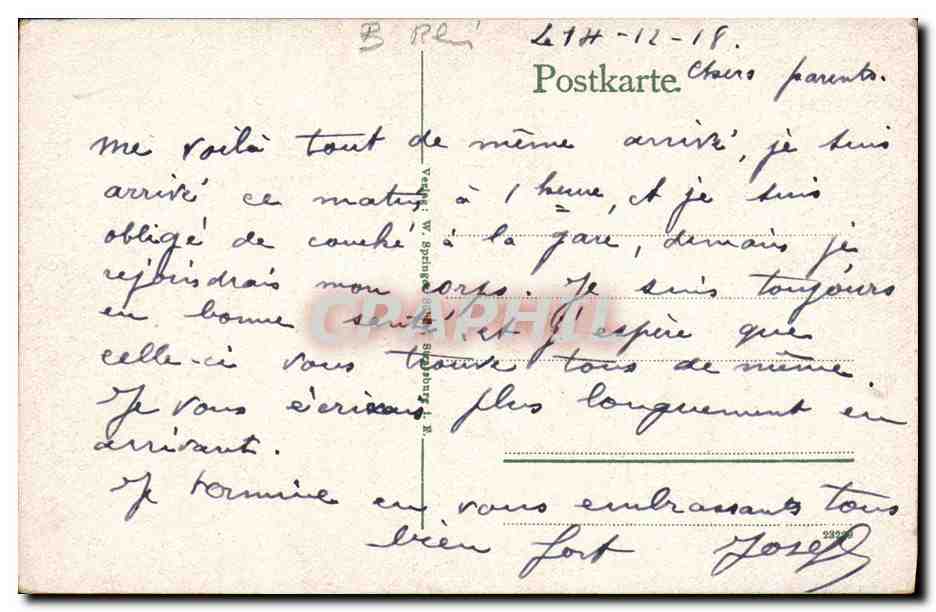 Le 14-12-18.
Postkarte. Chers parents.
me voilà tout de même arrivé, je suis
arrivé ce matin à 1 heure, et je suis
obligé de couché à la gare, demain je
rejoindrais mon corps. Je suis toujours
en bonne santé, et j'espère que
celle-ci vous trouve tous de même.
Je vous écrirais plus longuement en
arrivant.
Je termine en vous embrassants tous
bien fort Joseph
Verlag: W. Springer Strassburg i. E.
23229
CPAPHIL